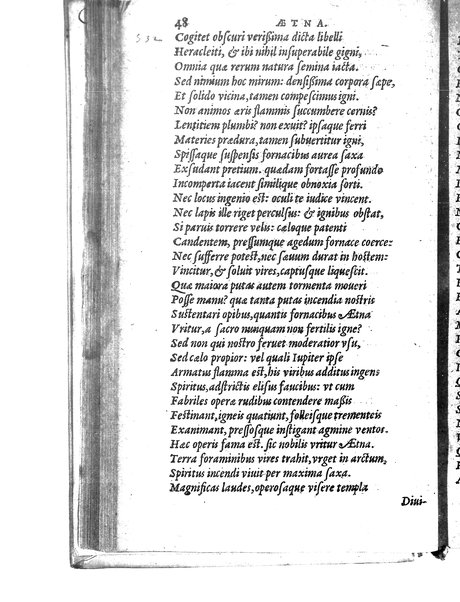 48 ÆTNA.
532 Cogitet obscuri verißima dicta libelli
Heracleiti, & ibi nihil insuperabile gigni,
Omnia quæ rerum natura semina iacta.
Sed nimium hoc mirum: densißima corpora sæpe,
Et solido vicina, tamen compescimus igni.
Non animos æris flammis succumbere cernis?
Lentitiem plumbi? non exuit? ipsaque ferri
Materies prædura, tamen subuertitur igni,
Spissaque suspensis fornacibus aurea saxa
Exsudant pretium. quædam fortasse profundo
Incomperta iacent similique obnoxia sorti.
Nec locus ingenio est: oculi te iudice vincent.
Nec lapis ille riget perculsus: & ignibus obstat,
Si paruis torrere velis: cæloque patenti
Candentem, pressumque agedum fornace coerce:
Nec sufferre potest, nec sæuum durat in hostem:
Vincitur, & soluit vires, captusque liquescit.
Quæ maiora putas autem tormenta moueri
Posse manu? quæ tanta putas incendia nostris
Sustentari opibus, quantis fornacibus Ætna
Vritur, a sacro nunquam non fertilis igne?
Sed non qui nostro feruet moderatior vsu,
Sed cælo propior: vel quali Iupiter ipse
Armatus flamma est, his viribus additus ingens
Spiritus, adstrictis elisus faucibus: vt cum
Fabriles operæ rudibus contendere maßis
Festinant, igneis quatiunt, follesque trementeis
Exanimant, pressoque instigant agmine ventos.
Hæc operis fama est. sic nobilis vritur Ætna.
Terra foraminibus vires trahit, vrget in arctum,
Spiritus incendi viuit per maxima saxa.
Magnificas laudes, operosaque visere templa
Diui-